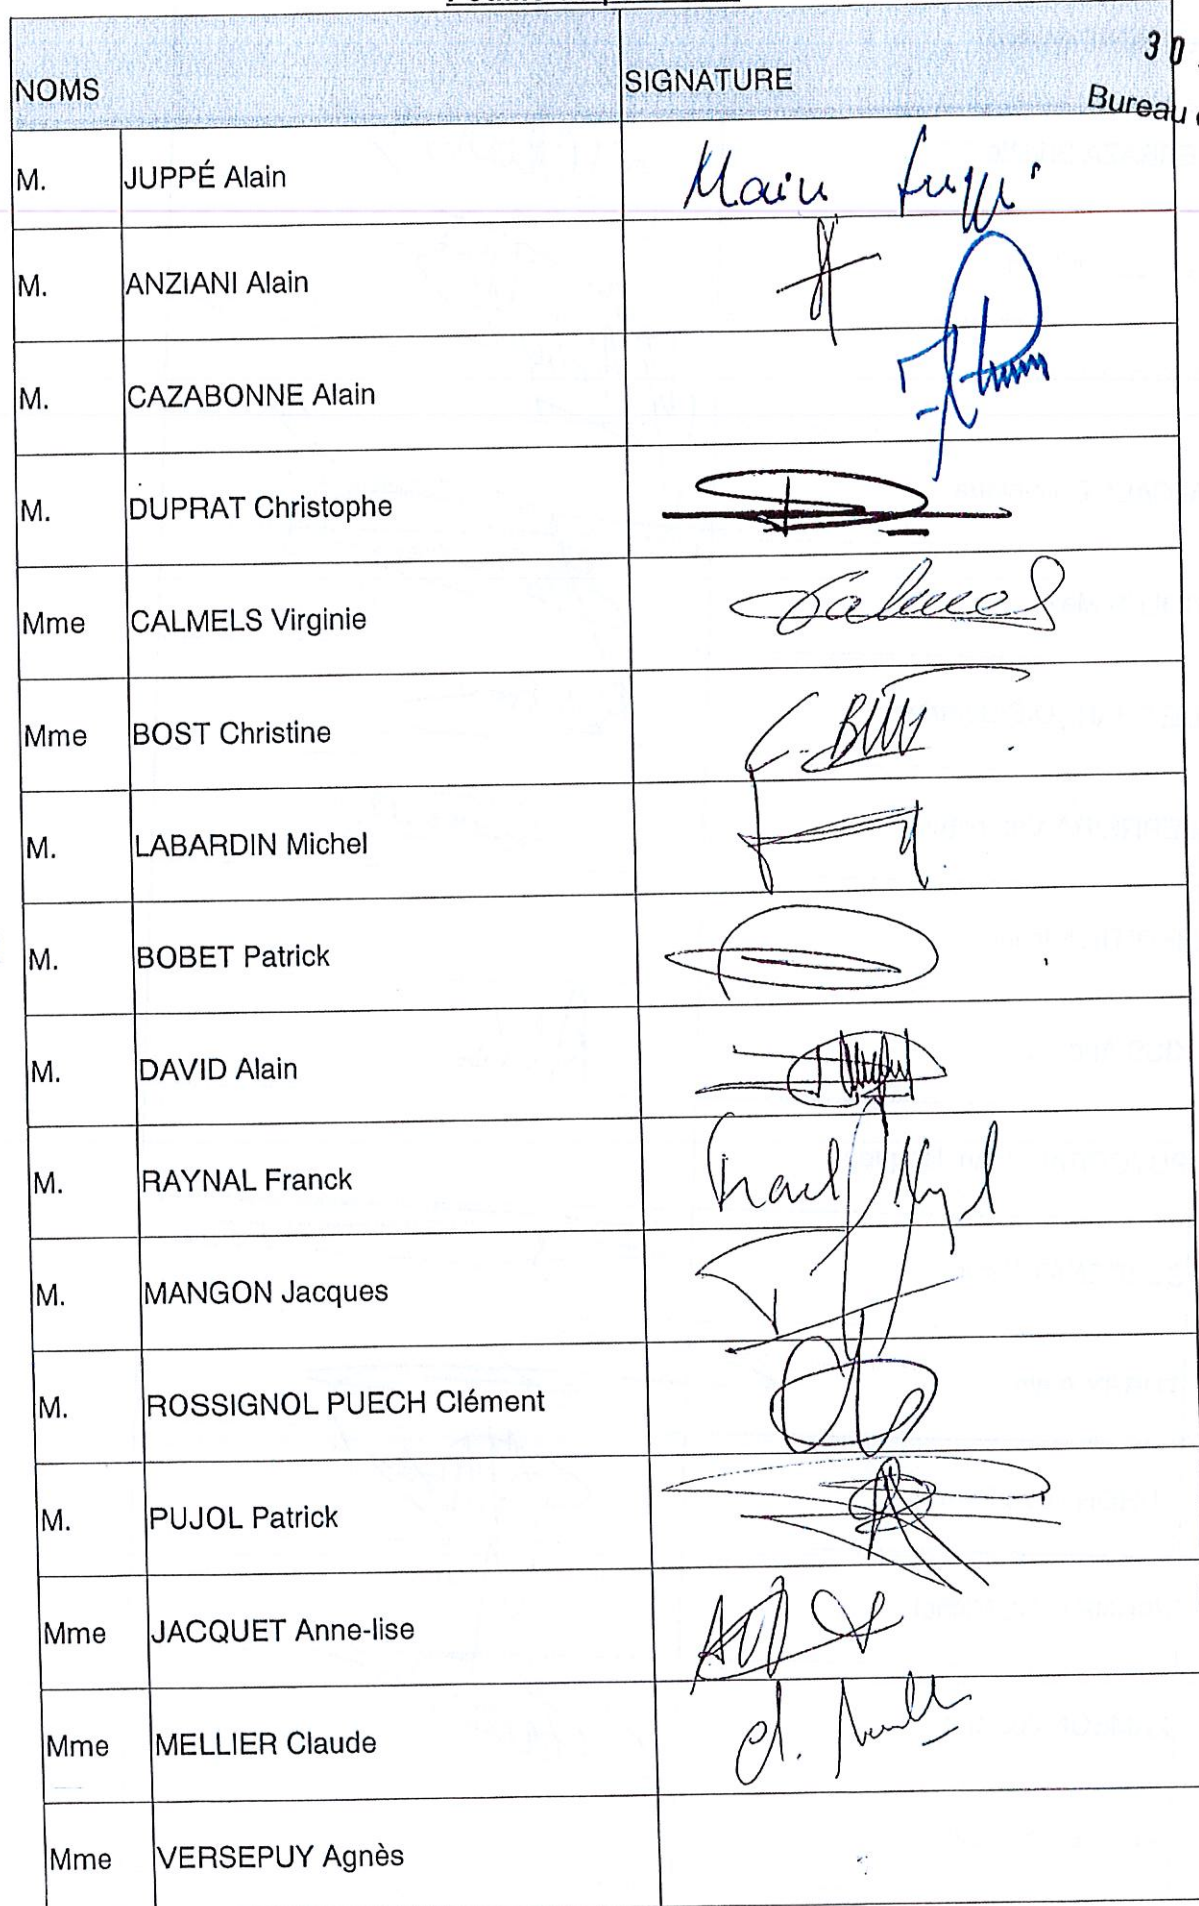 NOMS SIGNATURE
30
Bureau
M. JUPPÉ Alain Alain Juppé
M. ANZIANI Alain
M. CAZABONNE Alain
M. DUPRAT Christophe
Mme CALMELS Virginie Calmels
Mme BOST Christine C. Bost
M. LABARDIN Michel
M. BOBET Patrick
M. DAVID Alain
M. RAYNAL Franck Franck Raynal
M. MANGON Jacques
M. ROSSIGNOL PUECH Clément
M. PUJOL Patrick
Mme JACQUET Anne-lise
Mme MELLIER Claude
Mme VERSEPUY Agnès